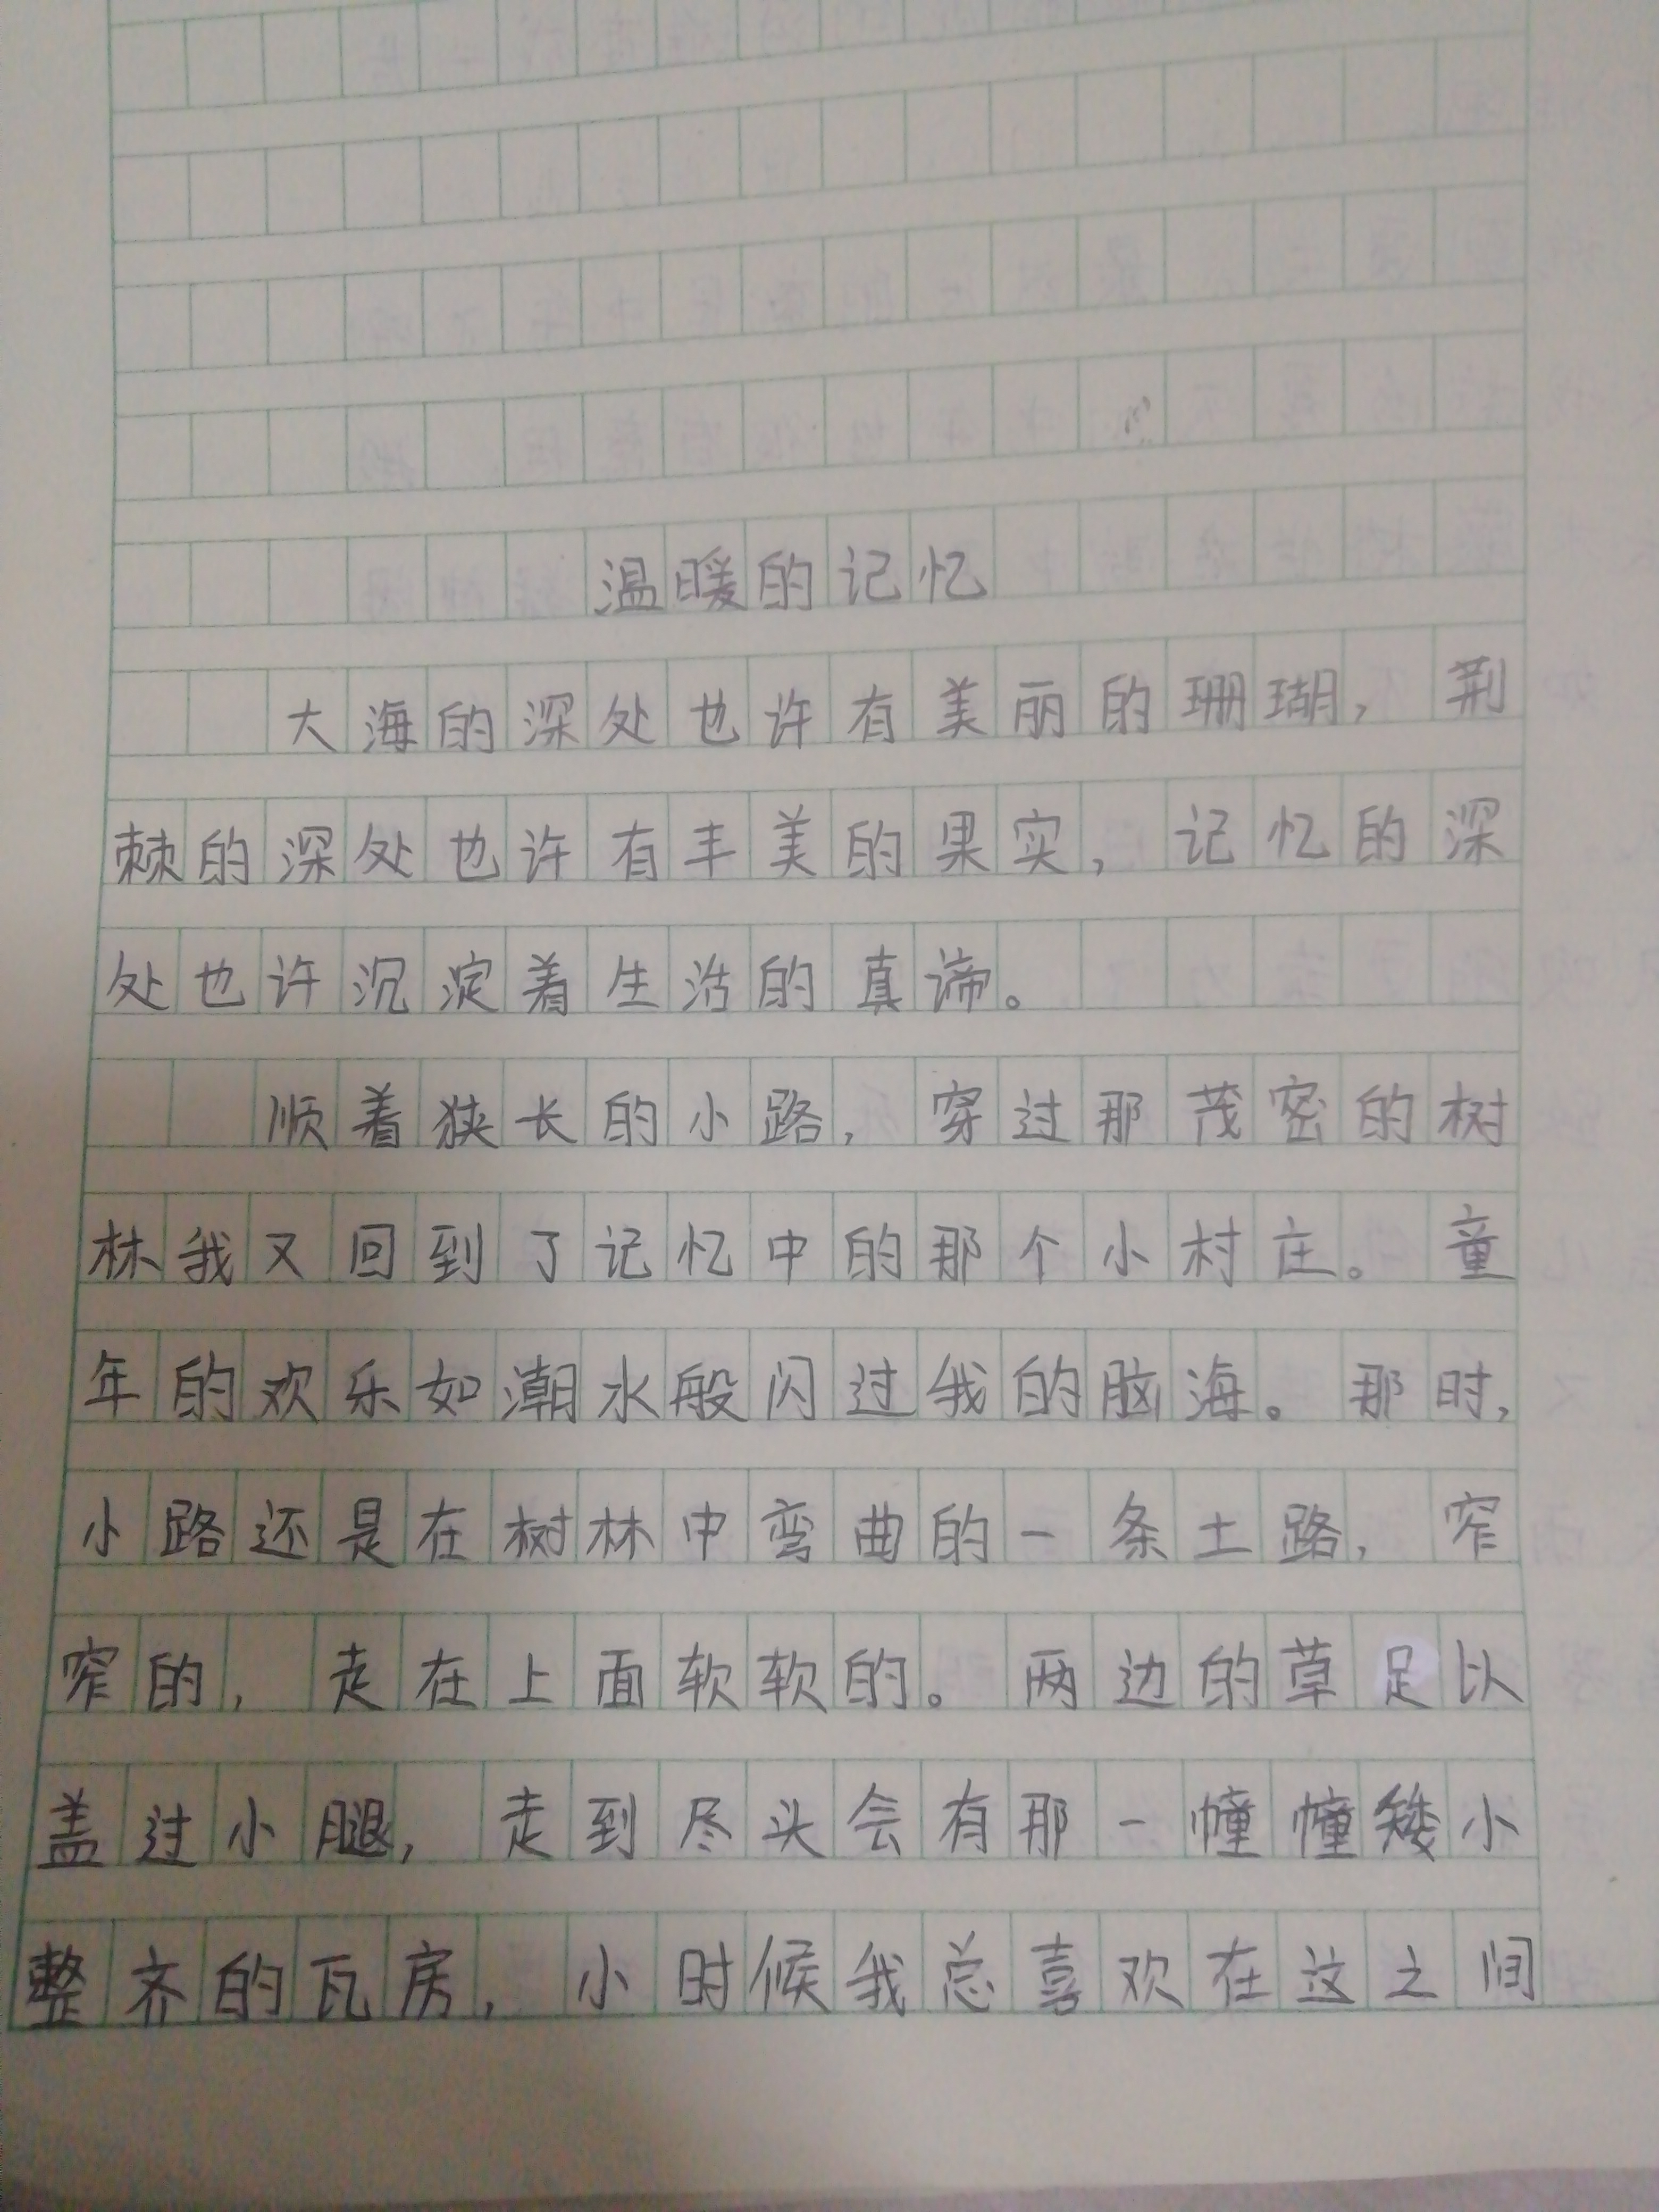 温暖的记忆
大海的深处也许有美丽的珊瑚，荆
棘的深处也许有丰美的果实，记忆的深
处也许沉淀着生活的真谛。
顺着狭长的小路，穿过那茂密的树
林我又回到了记忆中的那个小村庄。童
年的欢乐如潮水般闪过我的脑海。那时，
小路还是在树林中弯曲的一条土路，窄
窄的，走在上面软软的。两边的草足以
盖过小腿，走到尽头会有那一幢幢矮小
整齐的瓦房，小时候我总喜欢在这之间